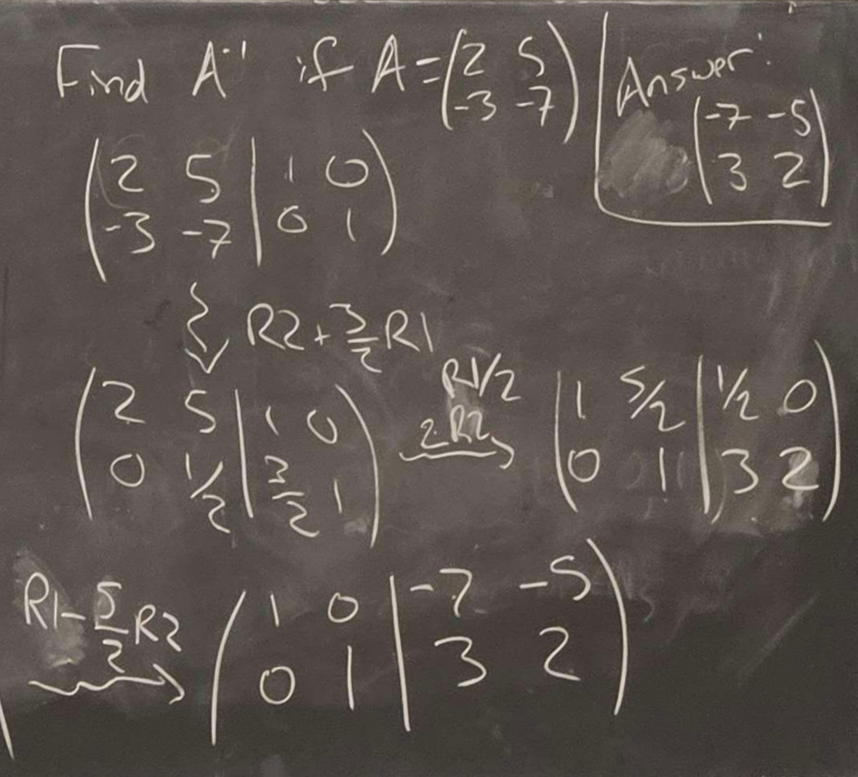 Find A⁻¹ if A = (2 5
-3 -7)
Answer:
(-7 -5
3 2)
(2 5 | 1 0
-3 -7 | 0 1)
R2 + 3/2 R1
(2 5 | 1 0
0 1/2 | 3/2 1)
R1/2
2R2
(1 5/2 | 1/2 0
0 1 | 3 2)
R1 - 5/2 R2
(1 0 | -7 -5
0 1 | 3 2)